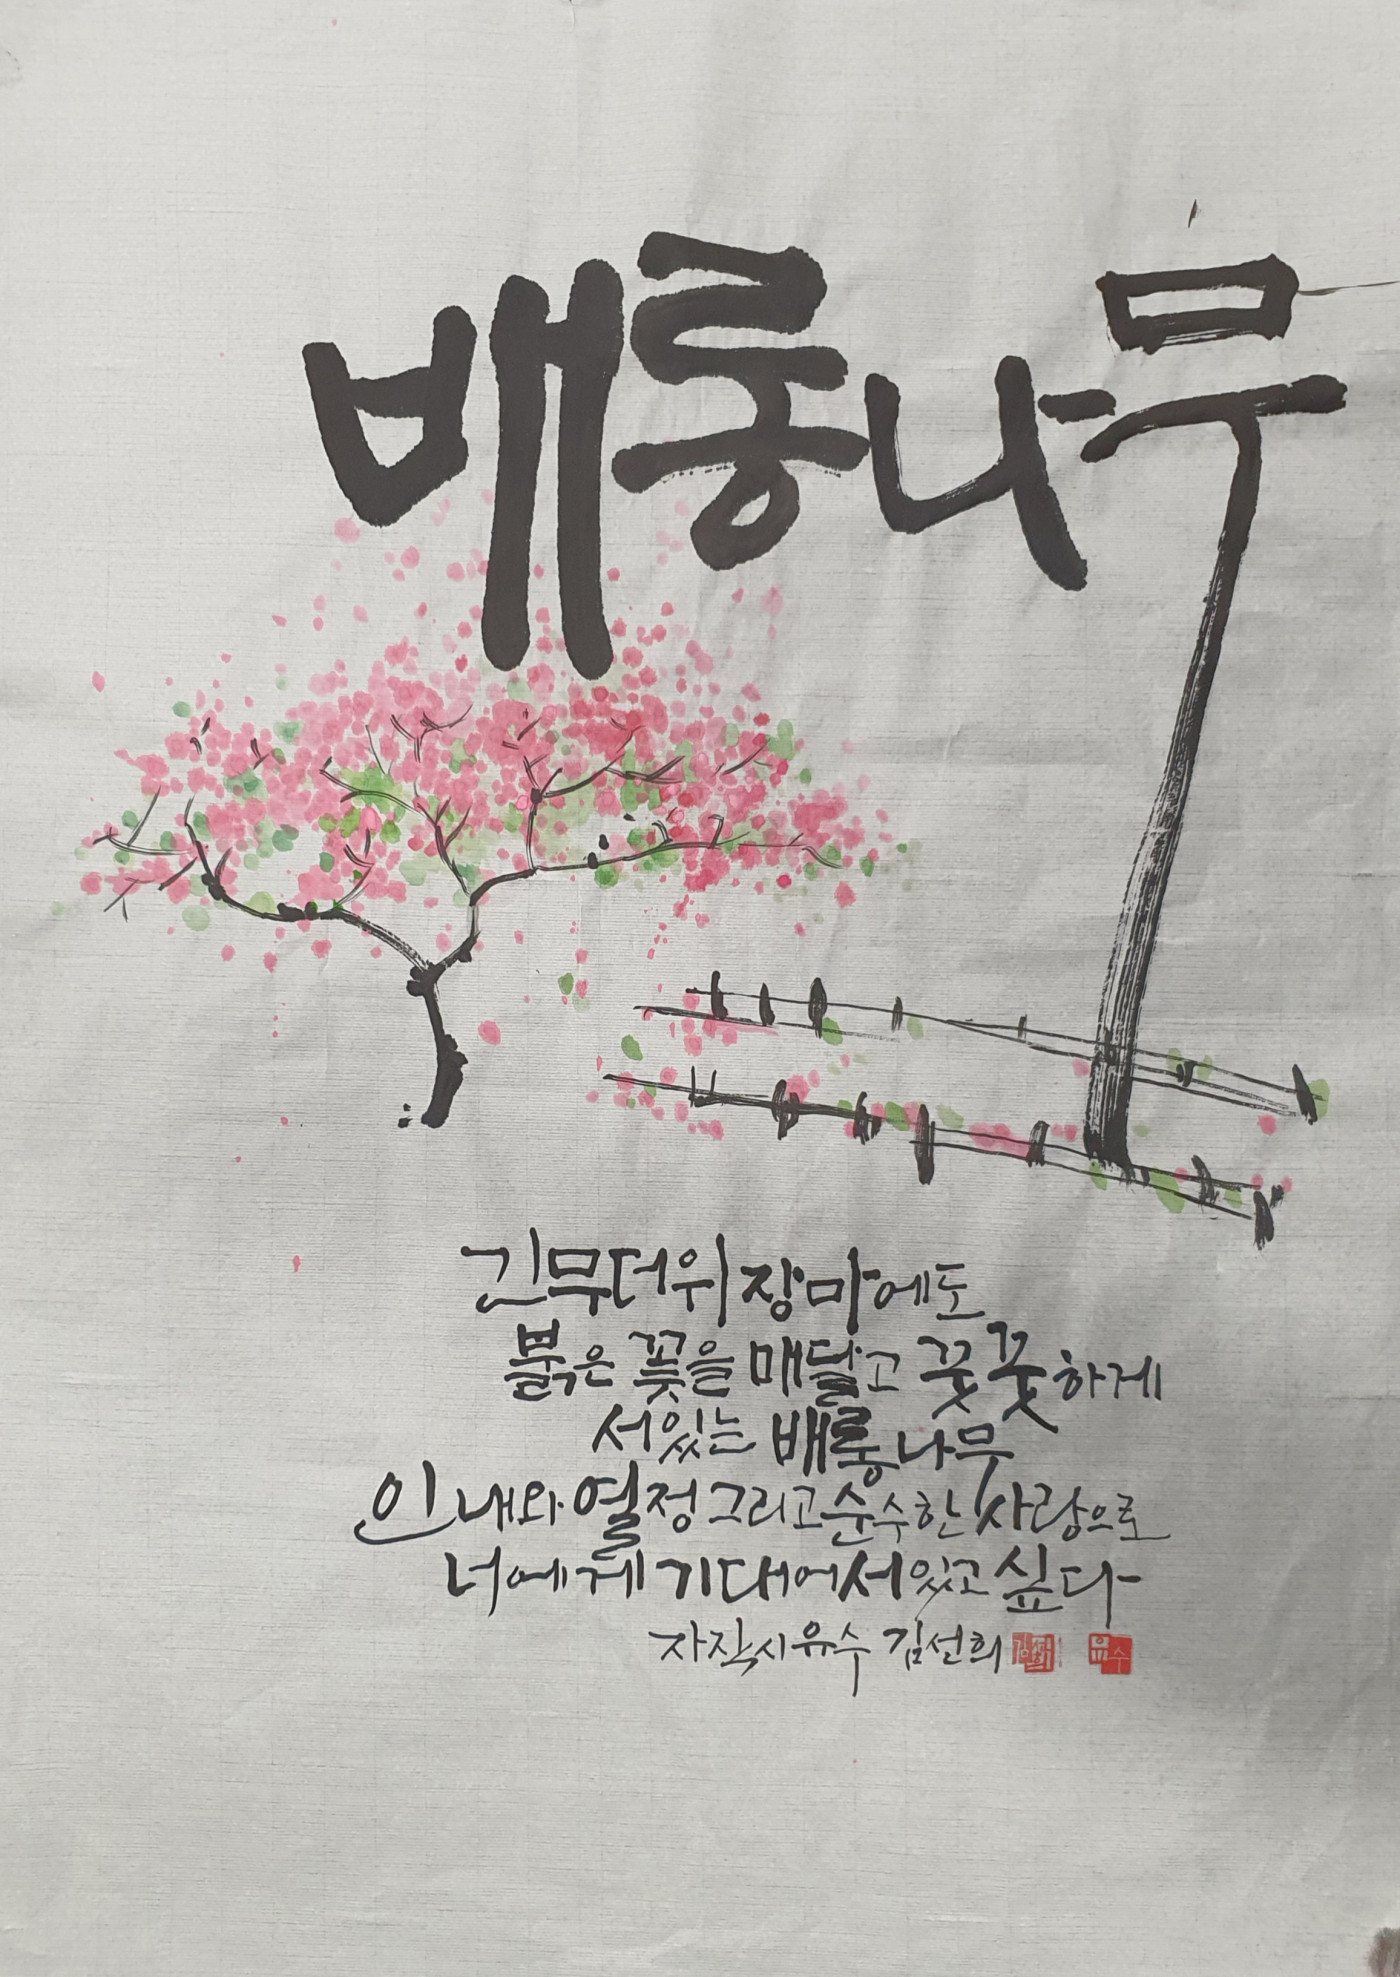 배롱나무
긴 무더위 장마에도
붉은 꽃을 매달고 꿋꿋하게
서있는 배롱나무
인내와 열정 그리고 순수한 사랑으로
너에게 기대어 서있고 싶다
자작시 유수 김선희 김선희 유수